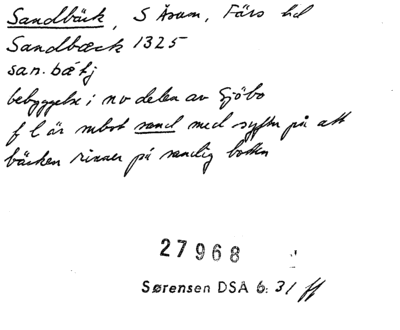 Sandbäck, S Åsum, Färs hd
Sandbæck 1325
san.bæ̀kj
bebyggelse i nv delen av Sjöbo
f l är subst sand med syftn på att
bäcken rinner på sandig botten
27968
Sørensen DSA 6: 31 ff